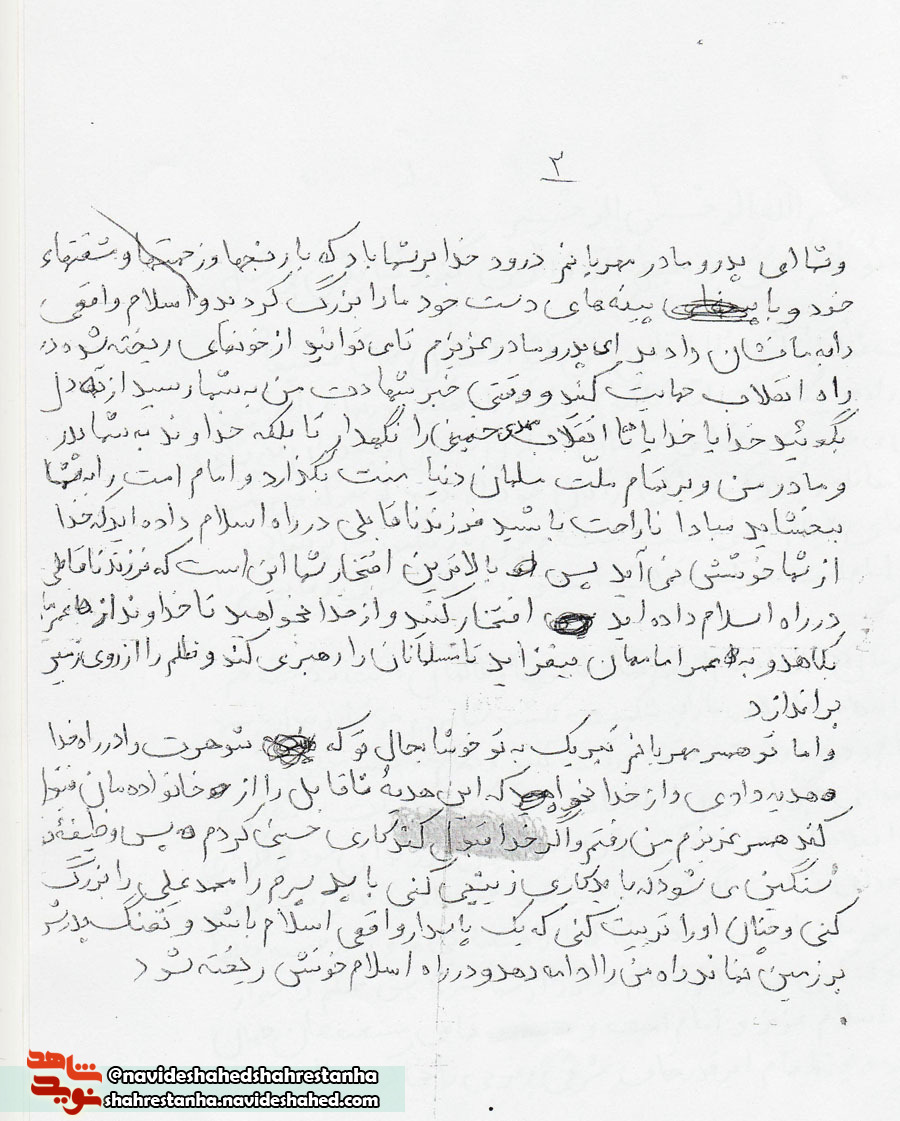 ۳
وشما ای پدر و مادر مهربانم درود خدا بر شما باد که با رنجها و زحمتها و مشقتهای
خود و با پینه های دست خود ما را بزرگ کردید و اسلام واقعی
را به ما نشان دادید ای پدر و مادر عزیزم تا می توانید از خونهای ریخته شده در
راه انقلاب حمایت کنید و وقتی خبر شهادت من به شما رسید از ته دل
بگوئید خدایا خدایا تا انقلاب مهدی خمینی را نگهدار تا بلکه خداوند به شما پدر
و مادر من و بر تمام ملت مسلمان دنیا منت بگذارد و امام امت را به شما
ببخشاید مبادا ناراحت باشید فرزند ناقابلی در راه اسلام داده اید که خدا
از شما خوشش می آید پس بالاترین افتخار شما این است که فرزند ناقابلی
در راه اسلام داده اید افتخار کنید و از خدا بخواهید تا خداوند از عمر ما
بکاهد و به عمر اماممان بیفزاید تا مسلمانان را رهبری کند و ظلم را از روی زمین
براندازد
و اما تو همسر مهربانم تبریک به تو خوشا بحال تو که شوهرت را در راه خدا
هدیه دادی و از خدا بخواهید که این هدیهٔ ناقابل را از خانواده مان قبول
کند همسر عزیزم من رفتم و اگر خدا قبول کند کاری حسینی کردم پس وظیفهٔ تو
سنگین می شود که باید کاری زینبی کنی باید پسرم را محمد علی را بزرگ
کنی و چنان او را تربیت کنی که یک پاسدار واقعی اسلام باشد و تفنگ پدرش
بر زمین نماند راه من را ادامه دهد و در راه اسلام خونش ریخته شود
شاهد
نوید
@navideshahedshahrestanha
shahrestanha.navideshahed.com